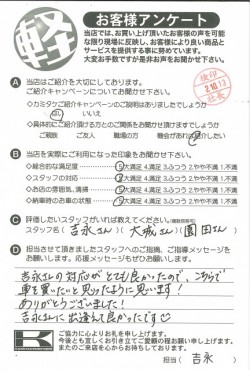 軽
お客様アンケート
当店では、お買い上げ頂いたお客様の声を可能
な限り現場に反映し、お客様により良い商品と
サービスを提供する事に努めています。
大変お手数ですが是非お声をお聞かせ下さい。
A 当店はご紹介を大切にしております。
ご紹介キャンペーンについてお聞かせ下さい。
◇カミタケご紹介キャンペーンのご説明はありましたでしょうか
はい いいえ
◇具体的にご紹介頂ける方とのご関係をお聞かせ頂けますでしょうか
ご親族 ご友人 職場の方 機会があれば紹介したい
B 当店を実際にご利用になった印象をお聞かせ下さい。
◇総合的な満足度 5大満足 4.満足 3.ふつう 2.やや不満 1.不満
◇スタッフの対応 5大満足 4.満足 3.ふつう 2.やや不満 1.不満
◇お店の雰囲気、清掃 5大満足 4.満足 3.ふつう 2.やや不満 1.不満
◇納車時のお車の状態 5大満足 4.満足 3.ふつう 2.やや不満 1.不満
C 評価したいスタッフがいれば教えてください。
スタッフ名 (吉永さん) (大城さん) (園田さん)
D 担当させて頂きましたスタッフへのご指摘、ご指導メッセージを
お願いします。応援メッセージもぜひお願いします。
吉永さんの対応がとても良かったので、こちらで
車を買いたいと思ったように思います!
ありがとうございました!
吉永さんに出逢えて良かったです
K
ご協力に心よりお礼を申し上げます。
今後とも宜しくお引き立てご愛顧の程お願い申し上げます。
またのご来店を心からお待ちしております。
担当(吉永)